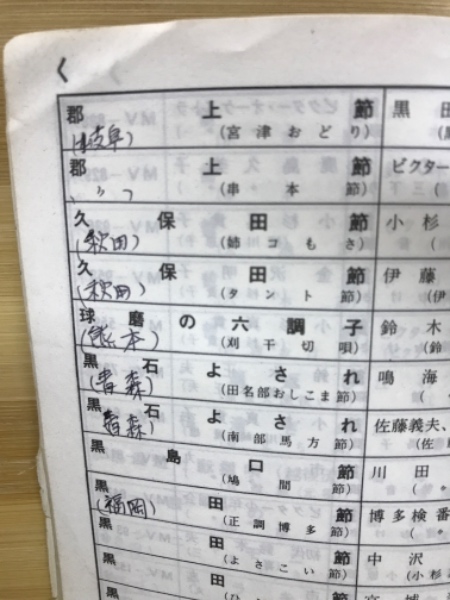 く
郡上節 黒田
(宮津おどり)
(岐阜)
郡上節 ビクター
(串本節)
久保田節 小杉
(姉コもさ)
(秋田)
久保田節 伊藤
(タント節)
(秋田)
球磨の六調子 鈴木
(刈干切唄)
(熊本)
黒石よされ 鳴海
(田名部おしこま節)
(青森)
黒石よされ 佐藤義夫、
(南部馬方節)
(青森)
黒島口節 川田
(鳩間節)
黒田節 博多検番
(正調博多節)
(福岡)
黒田節 中沢
(よさこい節) (小杉
黒田節 宮城